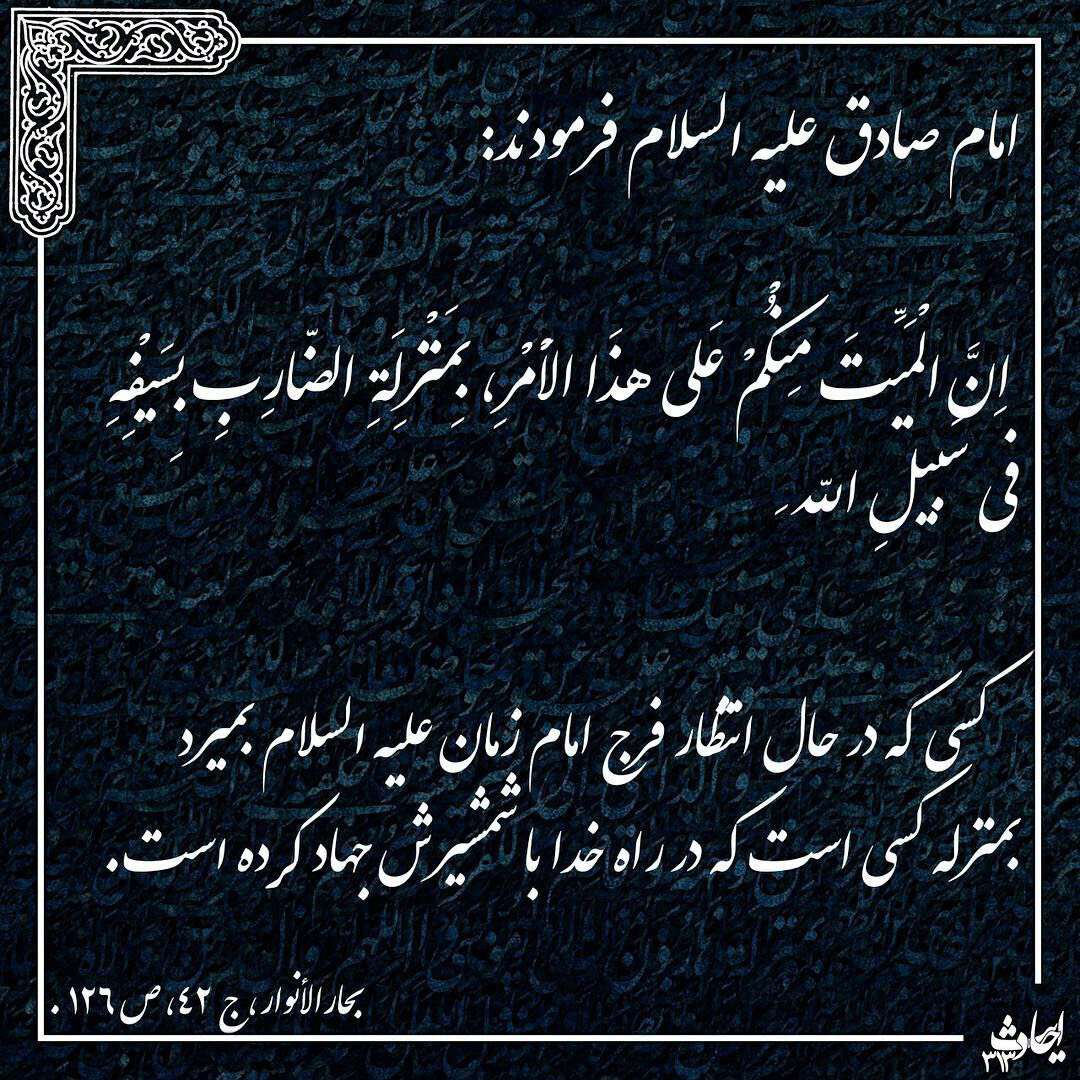 امام صادق علیه السلام فرمودند:
اِنَّ الْمَیِّتَ مِنْکُمْ عَلی هذَا الاَْمْرِ، بِمَنْزِلَةِ الضّارِبِ بِسَیْفِهِ
فی سَبیلِ اللّهِ
کسی که در حال انتظار فرج امام زمان علیه السلام بمیرد
بمنزله کسی است که در راه خدا با شمشیرش جهاد کرده است.
بحار الأنوار، ج ٤٢، ص ١٢٦ .
احادیث
۳۱۳